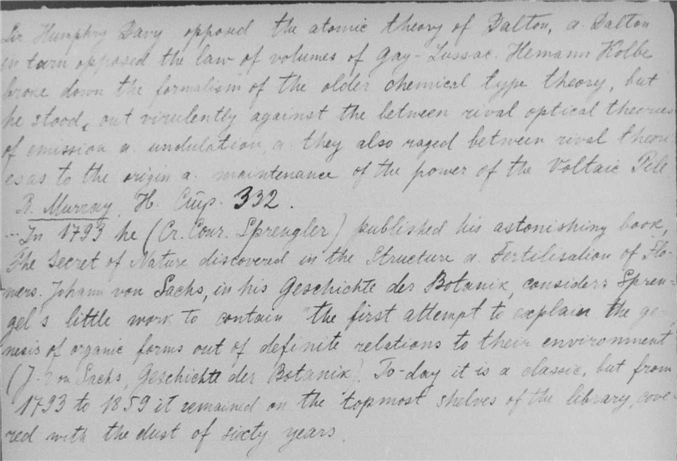 Sir Humphry Davy opposed the atomic theory of Dalton, a. Dalton
in turn opposed the law of volumes of Gay-Lussac. Hemann Kolbe
broke down the formalism of the older chemical type theory, but
he stood, out virulently against the between rival optical theories
of emission a. undulation, a. they also raged between rival theori
es as to the origin a. maintenance of the power of the Voltaic Pile
R. Murray, H. 332.
... In 1793 he (Cr. Conr. Sprengler) published his astonishing book,
The Secret of Nature discovered in the Structure a. Fertilisation of Flo-
wers. Johann von Sachs, in his Geschichte der Botanik, considers Spren-
gel's little work to contain "the first attempt to explain the ge-
nesis of organic forms out of definite relations to their environment
(J. von Sachs, Geschichte der Botanik). To-day it is a classic, but from
1793 to 1859 it remained on the topmost shelves of the library, cove-
red with the dust of sixty years.